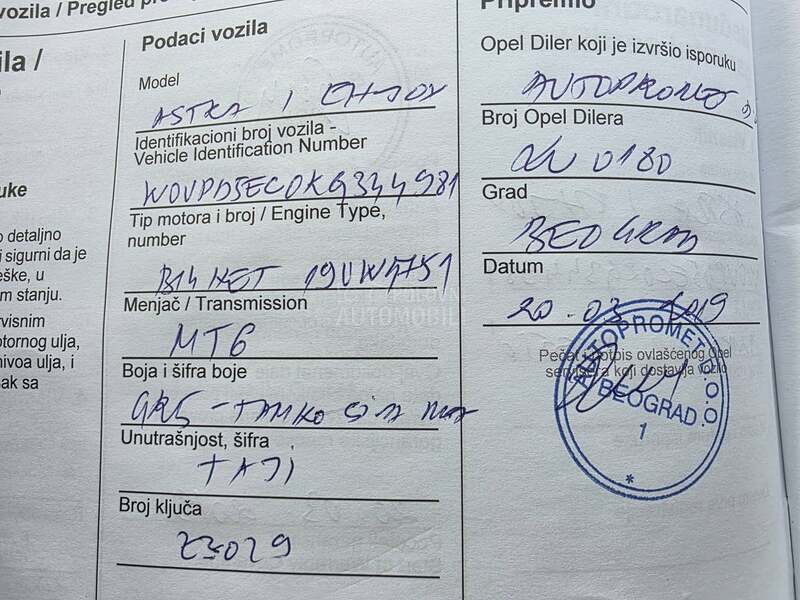 vozila / Pregled pre
ila /
uke
o detaljno
i sigurni da je
eške, u
m stanju.
rvisnim
otornog ulja,
nivoa ulja, i
sak sa
Podaci vozila
Model
ASTRA
Identifikacioni broj vozila -
Vehicle Identification Number
W0VPD5EC0KG344981
Tip motora i broj / Engine Type,
number
B14NET 19UW4751
Menjač / Transmission
MT6
Boja i šifra boje
GK5 - TAMNO
Unutrašnjost, šifra
TAJI
Broj ključa
Z3029
Pripremio
Opel Diler koji je izvršio isporuku
AUTOPROMET
Broj Opel Dilera
0180
Grad
BEOGRAD
Datum
20.03.2019
Pečat i potpis ovlašćenog Opel
servisera koji dostavlja vozilo
AUTOPROMET D.O.O.
BEOGRAD
1